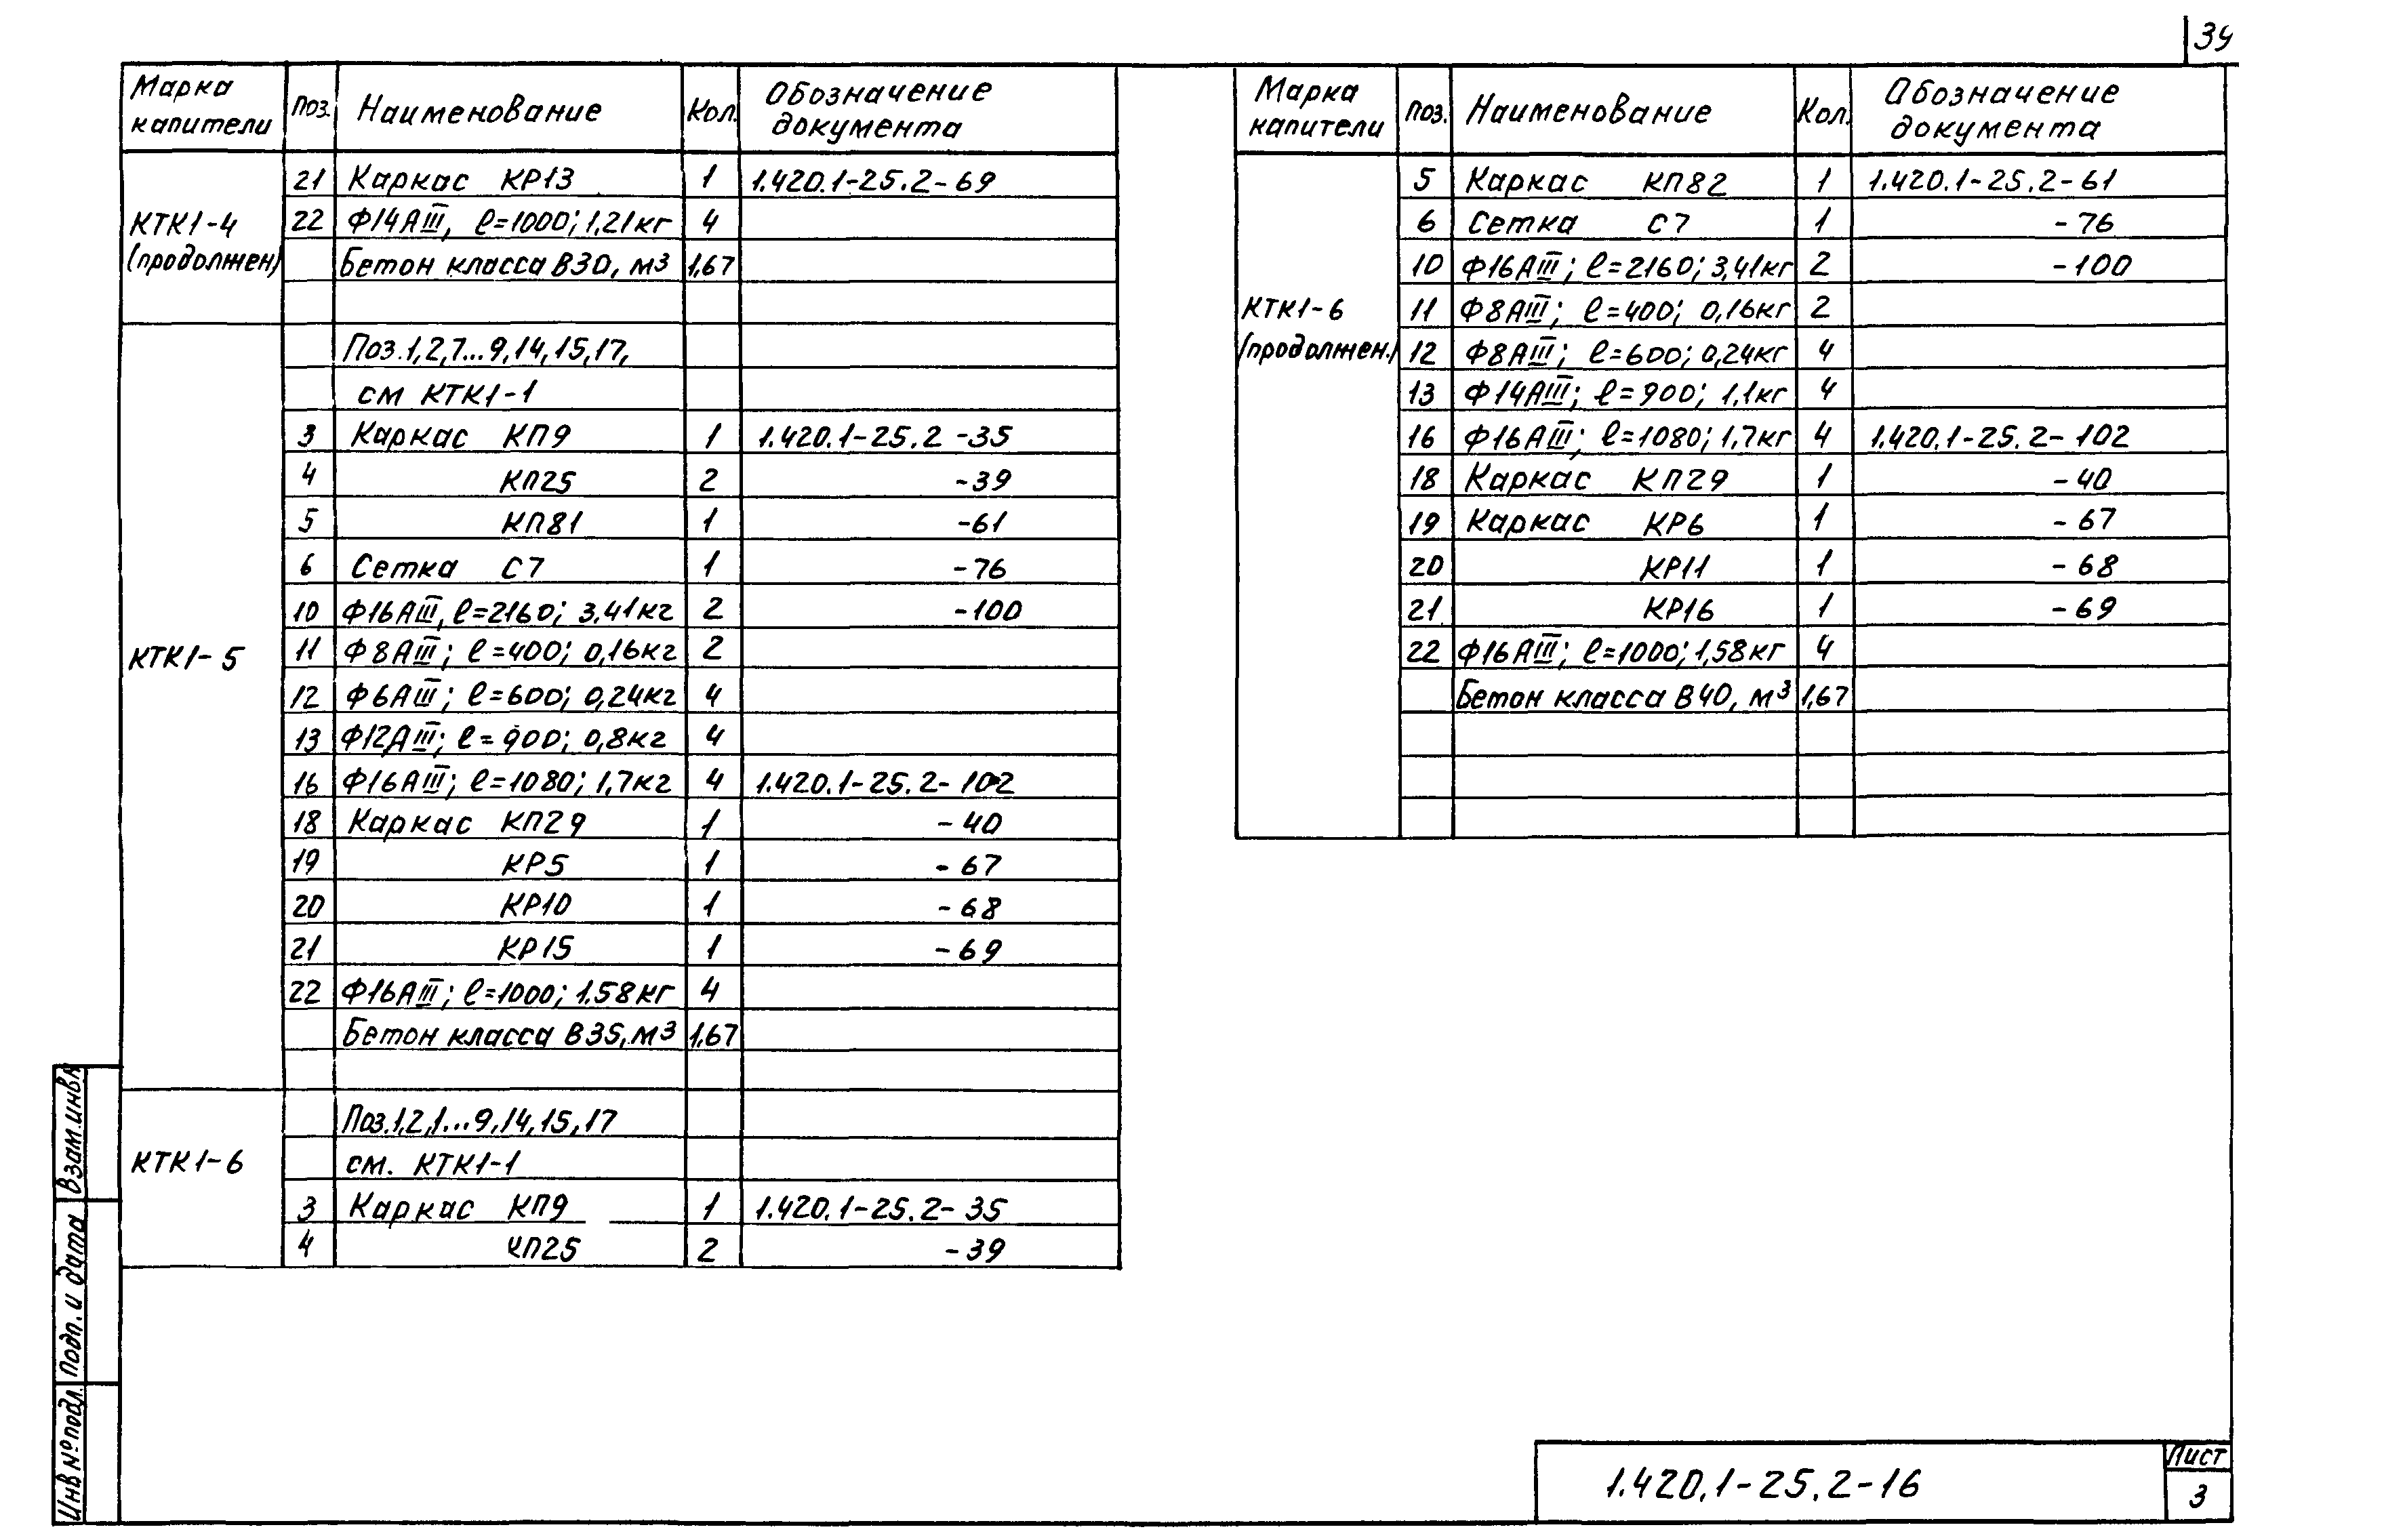 39
Марка капители Поз. Наименование Кол. Обозначение документа
КТК1-4 (продолжен)
21 Каркас КР13 1 1.420.1-25.2-69
22 Ф14АIII, ℓ=1000; 1,21кг 4
Бетон класса В30, м3 1,67
КТК1-5
Поз.1,2,7...9,14,15,17,
см КТК1-1
3 Каркас КП9 1 1.420.1-25.2-35
4 КП25 2 -39
5 КП81 1 -61
6 Сетка С7 1 -76
10 Ф16АIII, ℓ=2160; 3,41кг 2 -100
11 Ф8АIII; ℓ=400; 0,16кг 2
12 Ф6АIII; ℓ=600; 0,24кг 4
13 Ф12АIII; ℓ=900; 0,8кг 4
16 Ф16АIII; ℓ=1080; 1,7кг 4 1.420.1-25.2-102
18 Каркас КП29 1 -40
19 КР5 1 -67
20 КР10 1 -68
21 КР15 1 -69
22 Ф16АIII; ℓ=1000; 1.58кг 4
Бетон класса В35, м3 1,67
КТК1-6
Поз.1,2,1...9,14,15,17
см. КТК1-1
3 Каркас КП9 1 1.420.1-25.2-35
4 КП25 2 -39
Марка капители Поз. Наименование Кол. Обозначение документа
КТК1-6 (продолжен.)
5 Каркас КП82 1 1.420.1-25.2-61
6 Сетка С7 1 -76
10 Ф16АIII; ℓ=2160; 3,41кг 2 -100
11 Ф8АIII; ℓ=400; 0,16кг 2
12 Ф8АIII; ℓ=600; 0,24кг 4
13 Ф14АIII; ℓ=900; 1,1кг 4
16 Ф16АIII; ℓ=1080; 1,7кг 4 1.420.1-25.2-102
18 Каркас КП29 1 -40
19 Каркас КР6 1 -67
20 КР11 1 -68
21 КР16 1 -69
22 Ф16АIII; ℓ=1000; 1,58кг 4
Бетон класса В40, м3 1,67
Взам.инв.№
Подп. и дата
Инв №подл.
1.420.1-25.2-16
Лист
3